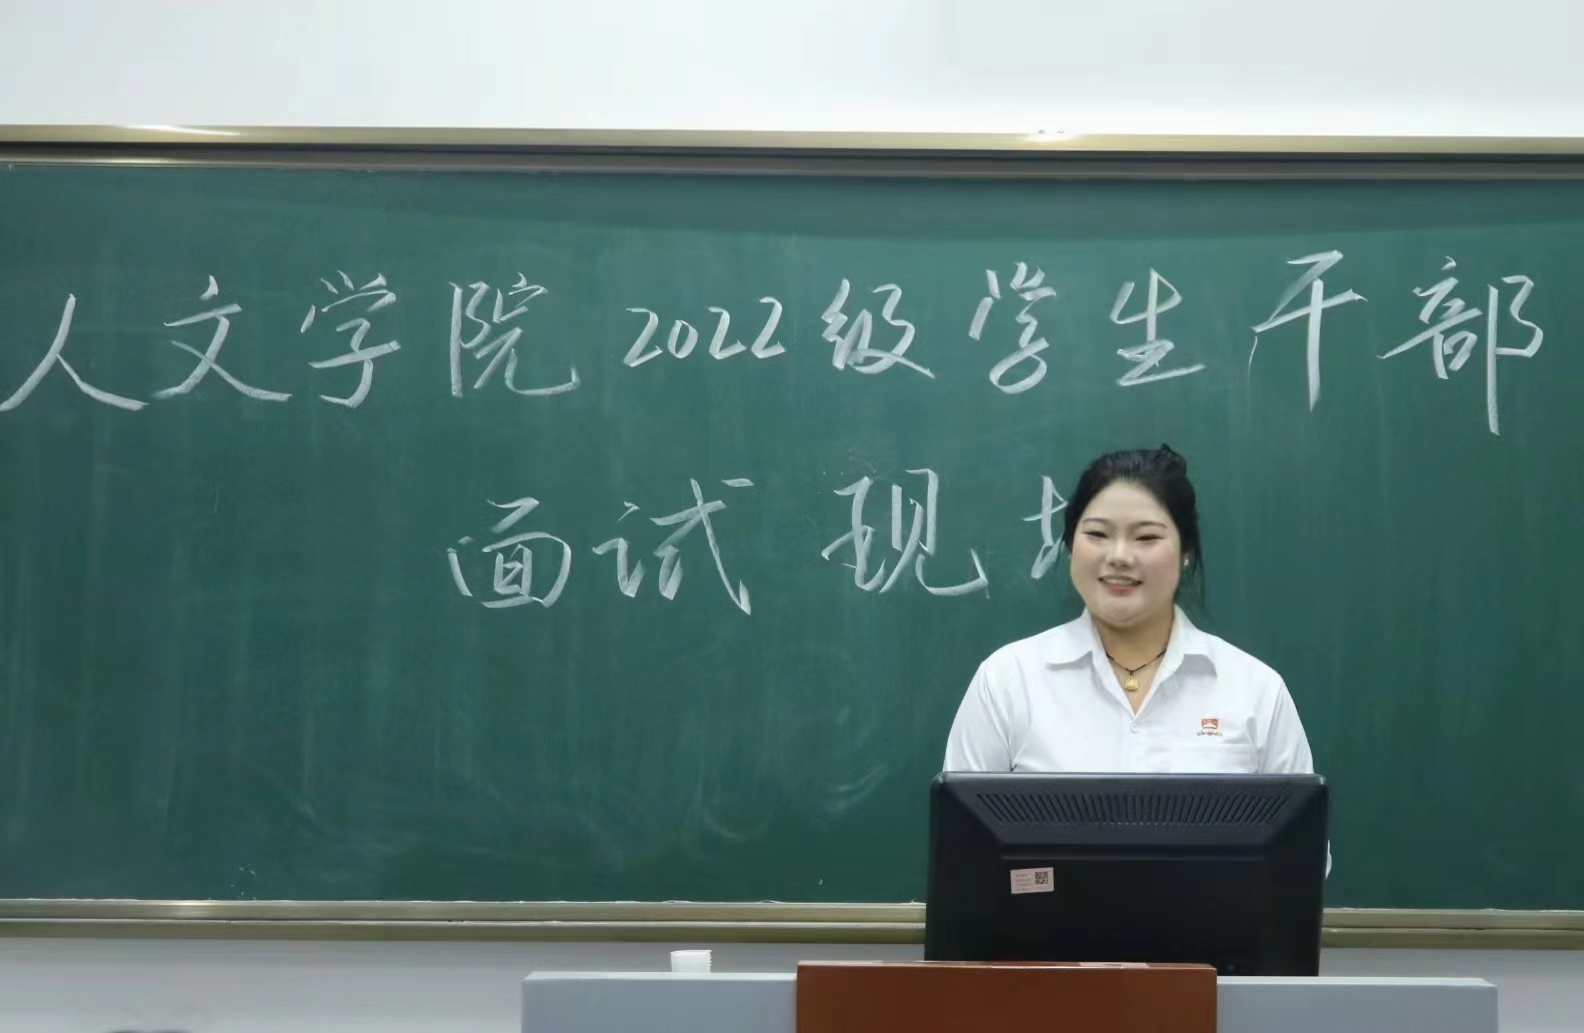 人文学院2022级学生干部
面试现